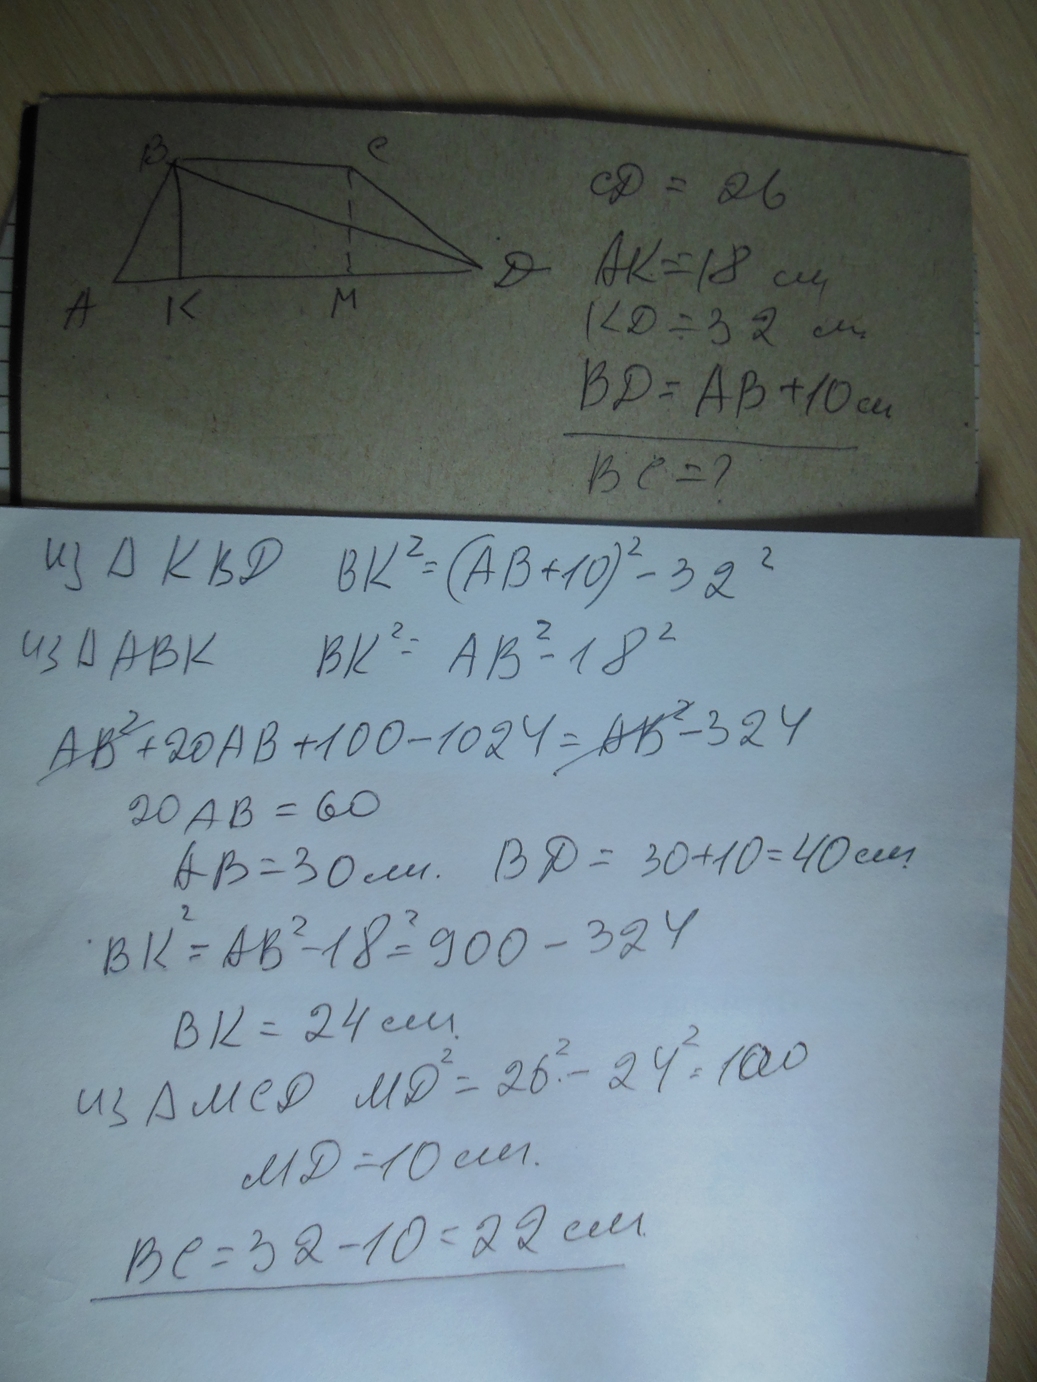 B C
A K M D
CD = 26
AK = 18 см
KD = 32 см
BD = AB + 10 см
BC = ?
из Δ KBD BK² = (AB + 10)² - 32²
из Δ ABK BK² = AB² - 18²
AB² + 20AB + 100 - 1024 = AB² - 324
20 AB = 60
AB = 30 см. BD = 30 + 10 = 40 см
BK² = AB² - 18² = 900 - 324
BK = 24 см
из Δ MCD MD² = 26² - 24² = 100
MD = 10 см.
BC = 32 - 10 = 22 см